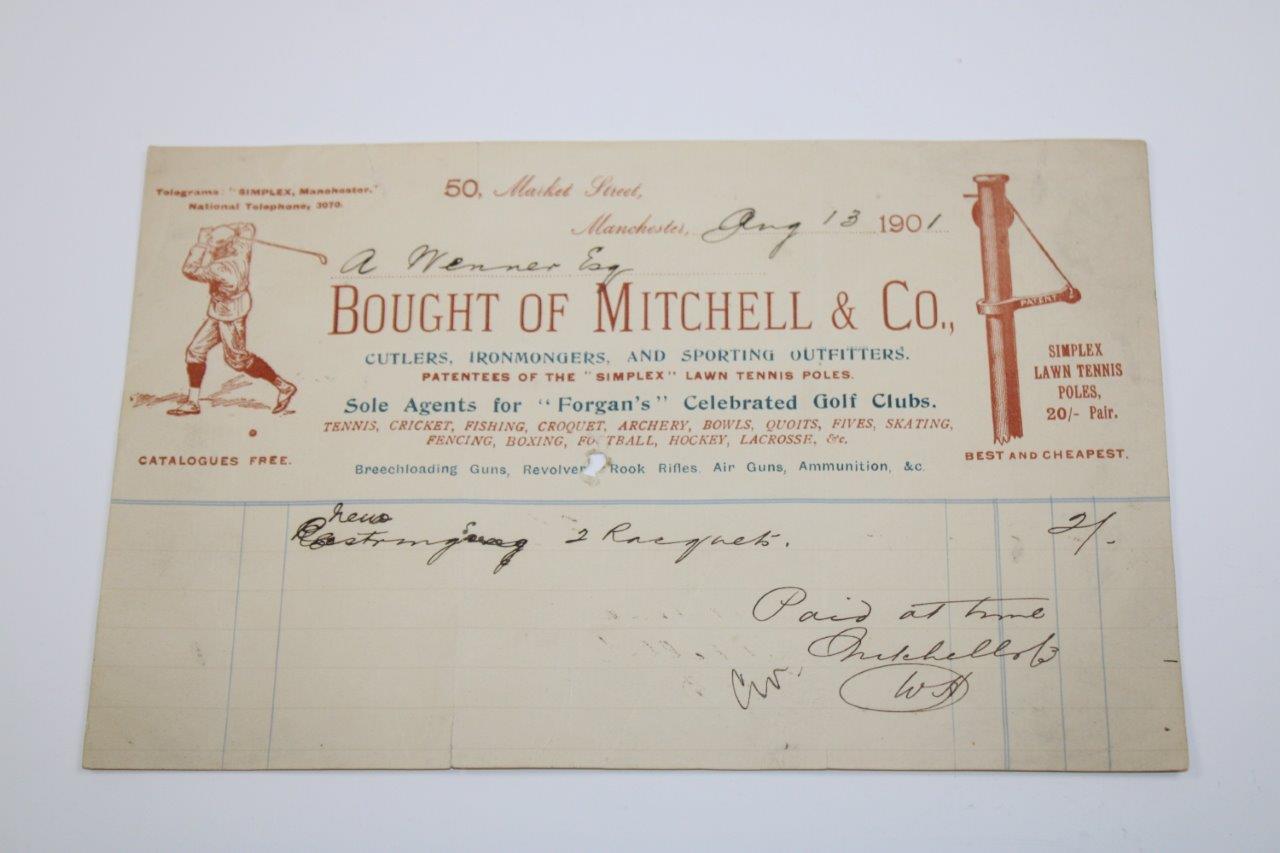 Telegrams: "SIMPLEX, Manchester."
National Telephone, 3070.
50, Market Street,
Manchester, Aug 13 1901
A Wenner Esq
BOUGHT OF MITCHELL & CO.,
CUTLERS, IRONMONGERS, AND SPORTING OUTFITTERS.
PATENTEES OF THE "SIMPLEX" LAWN TENNIS POLES.
Sole Agents for "Forgan's" Celebrated Golf Clubs.
TENNIS, CRICKET, FISHING, CROQUET, ARCHERY, BOWLS, QUOITS, FIVES, SKATING,
FENCING, BOXING, FOOTBALL, HOCKEY, LACROSSE, &c.
Breechloading Guns, Revolver Rook Rifles. Air Guns, Ammunition, &c.
CATALOGUES FREE.
PATENT
SIMPLEX
LAWN TENNIS
POLES,
20/- Pair.
BEST AND CHEAPEST.
new
Restringing 2 Racquets. 2/-
Paid at time
Mitchell
WH